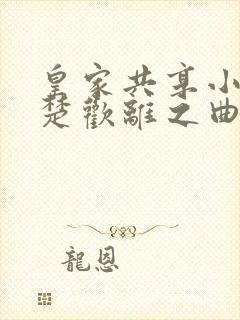 皇家共享小
楚歡離之曲
龍恩